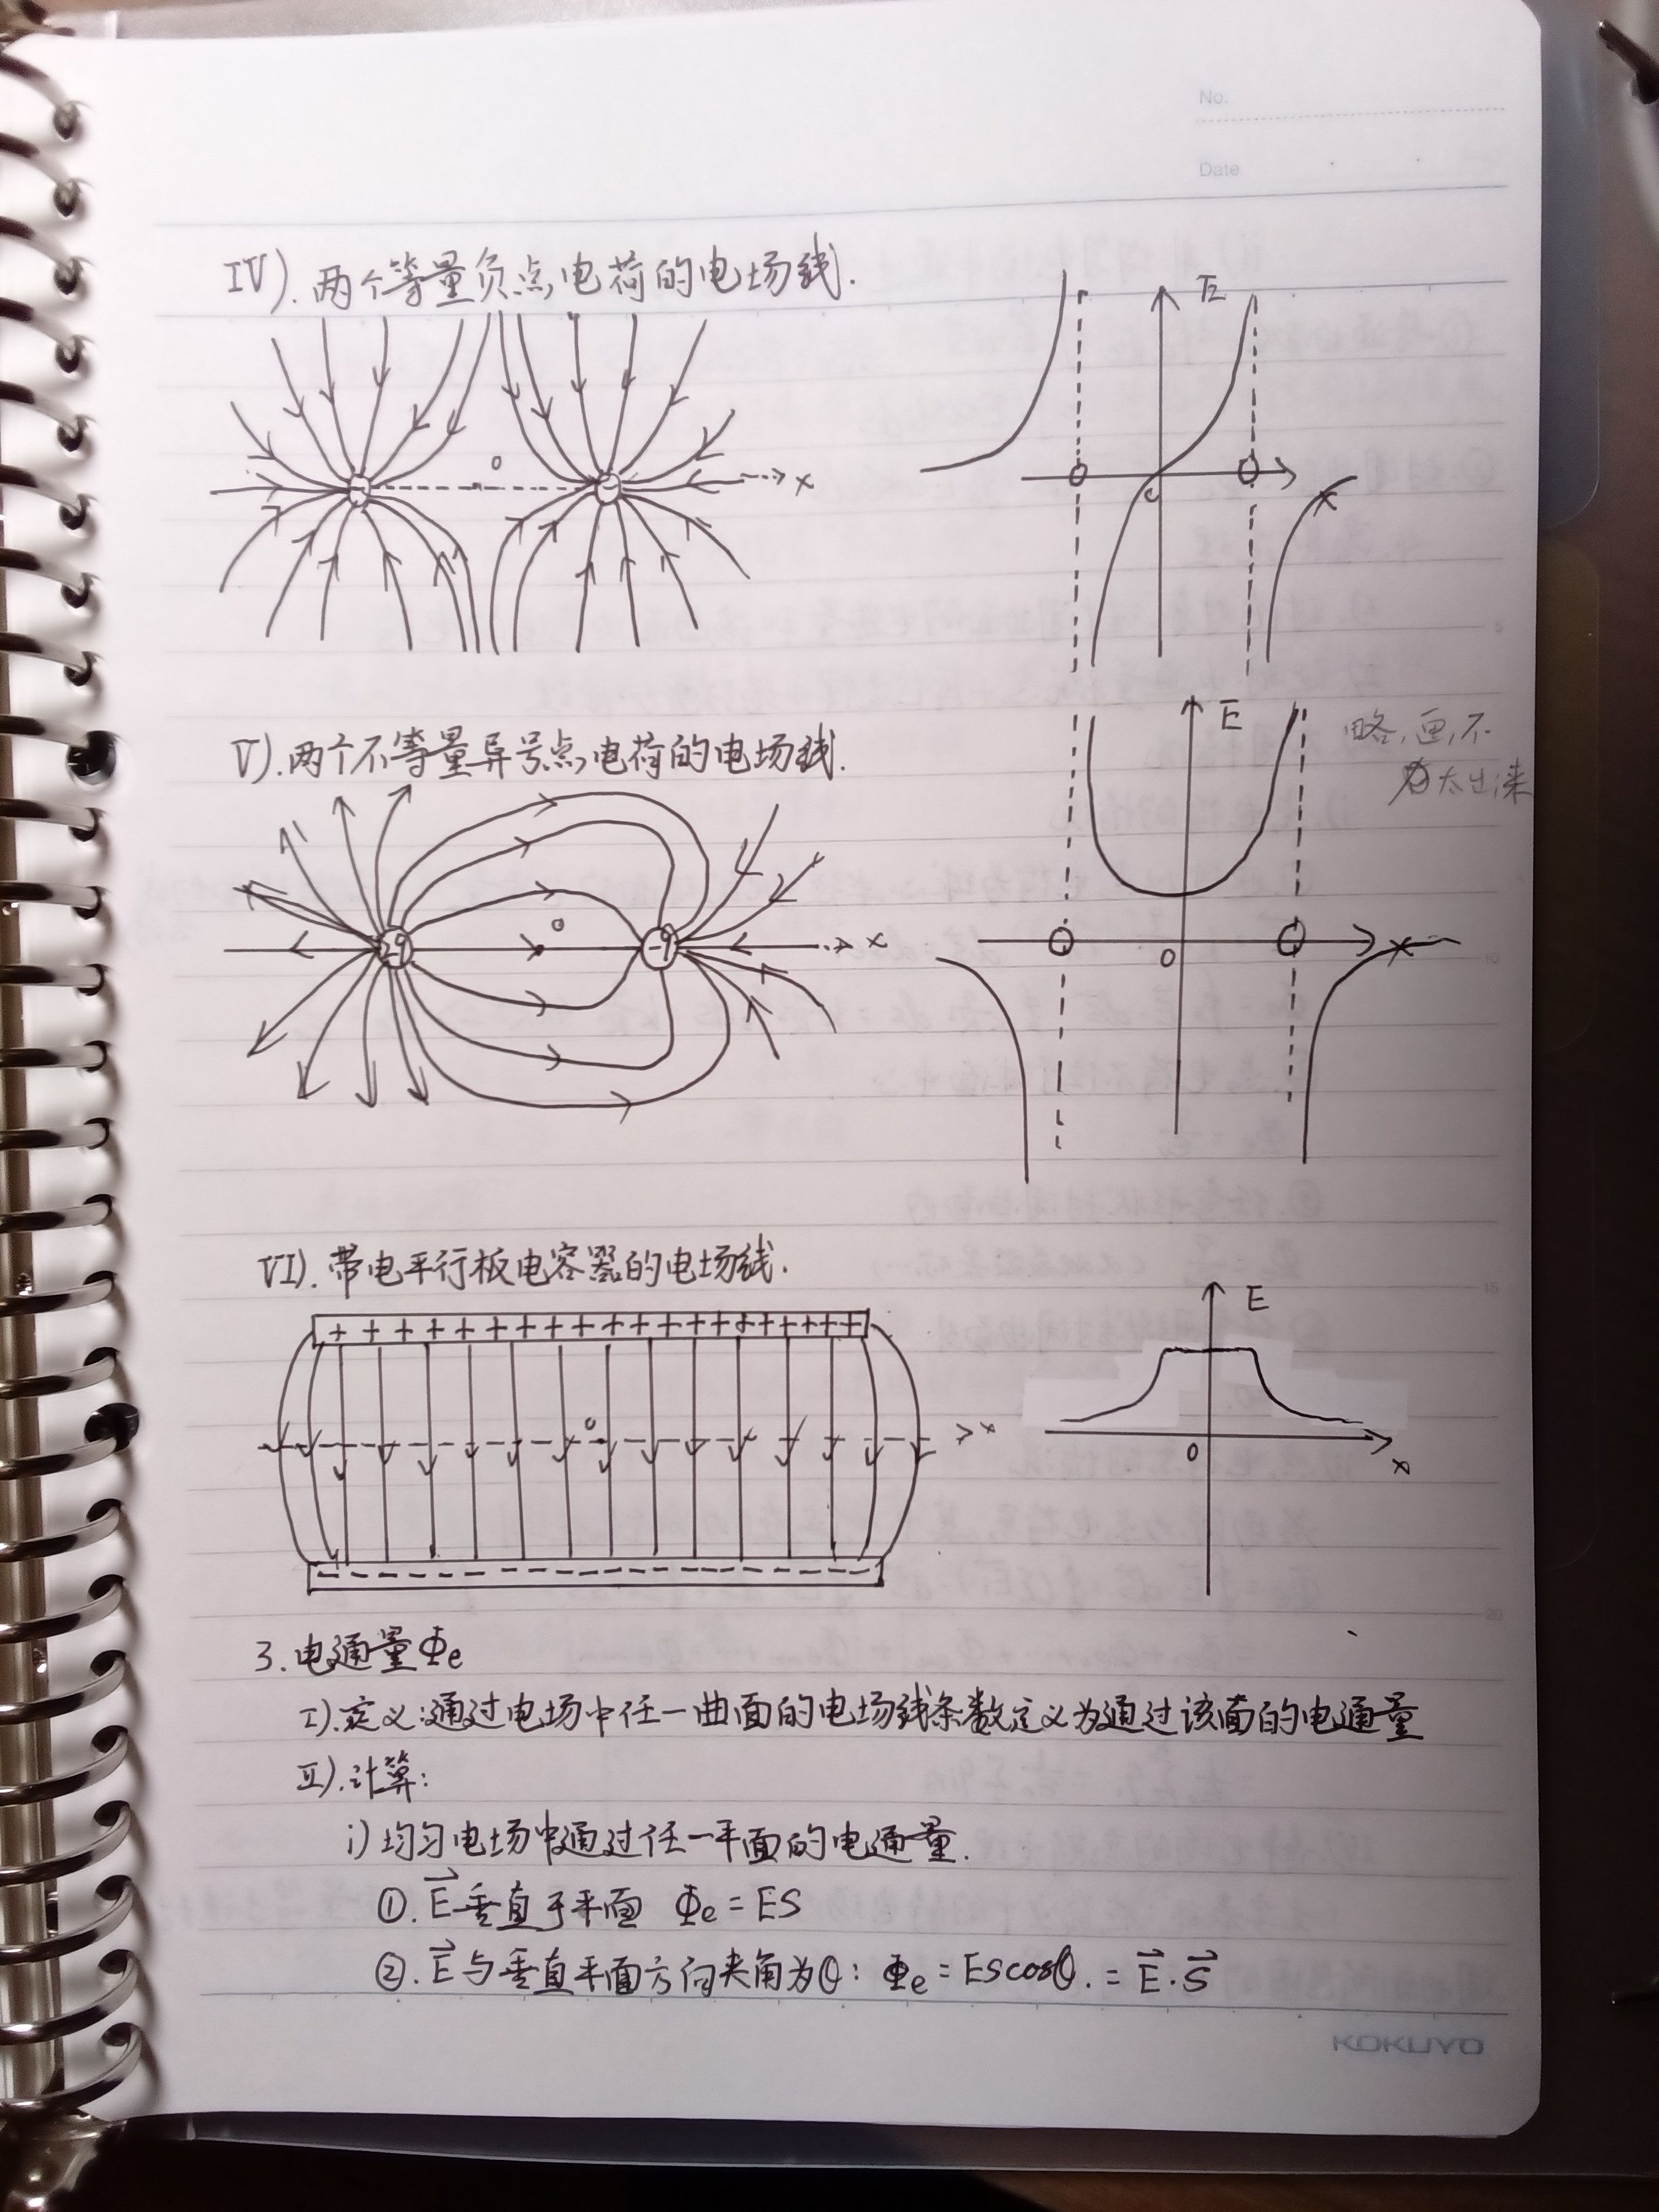 No.
Date
IV).两个等量负点电荷的电场线.
E
o
x
o
x
V).两个不等量异号点电荷的电场线.
E
略,画不
太出来
2q
o
-q
x
o
x
VI).带电平行板电容器的电场线.
E
+ + + + + + + + + + + + + + + + + +
o
x
o
x
3.电通量Φe
I).定义:通过电场中任一曲面的电场线条数定义为通过该面的电通量
II).计算:
i)均匀电场中通过任一平面的电通量.
①.E⃗垂直于平面 Φe=ES
②.E⃗与垂直平面方向夹角为θ: Φe=EScosθ.=E⃗·S⃗
KOKUYO